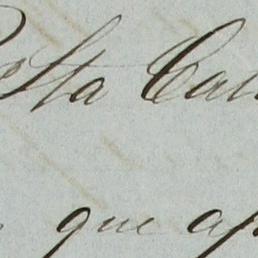 esta Cat
que ap